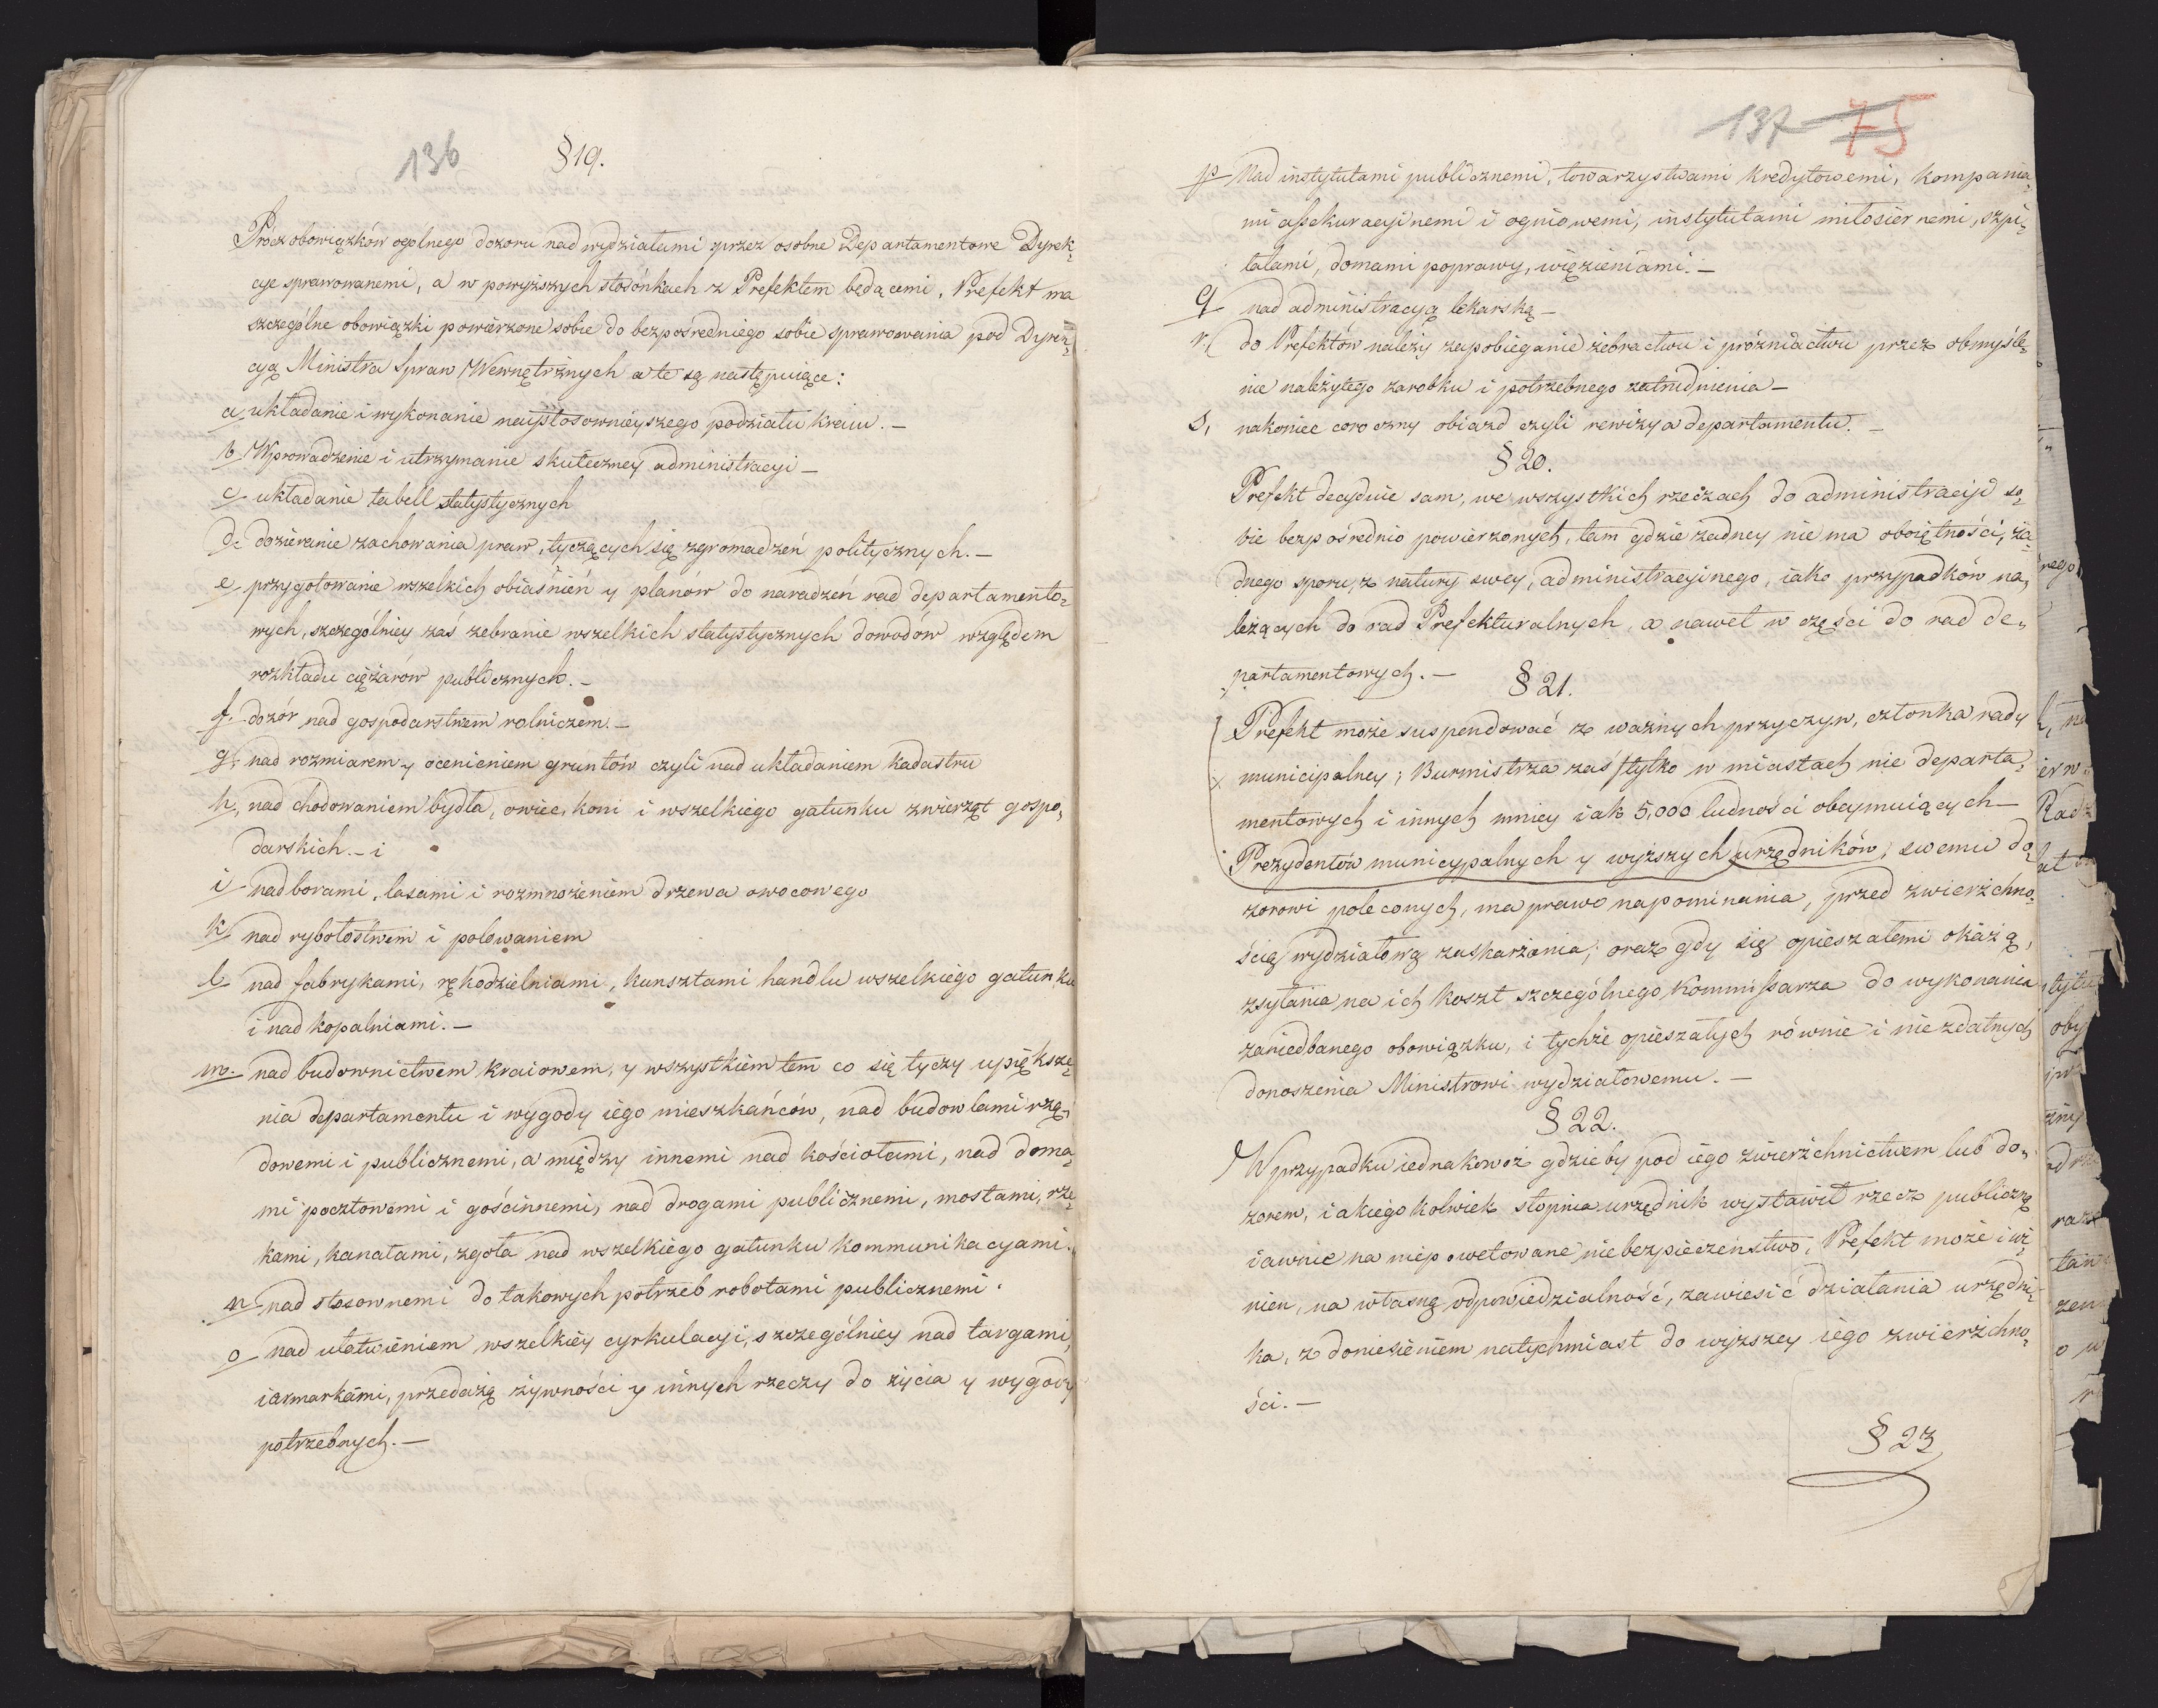 136
§ 19.
Prócz obowiązków ogolnego dozoru nad wydziałami przez osobne Departamentowe Dyrek-
cye sprawowanemi, a w powyższych stosónkach z Prefektem będącemi, Prefekt ma
szczególne obowiązki powierzone sobie do bezpośredniego sobie sprawowania pod Dyrek-
cyą Ministra Spraw Wewnętrznych a te są następuiące:
a układanie i wykonanie naystosownieyszego podziału kraiu. —
b Wprowadzenie i utrzymanie skuteczney administracyi —
c układanie tabell statystycznych
d. dozieranie zachowania praw, tyczących się zgromadzeń politycznych. —
e przygotowanie wszelkich obiaśnień y planów do naradzeń rad departamento-
wych, szczególniey zaś zebranie wszelkich statystycznych dowodów względem
rozkładu ciężarów publicznych. —
f. dozór nad gospodarstwem rolniczem. —
g. nad rozmiarem y ocenieniem gruntów czyli nad układaniem kadastru
h, nad chodowaniem bydła, owiec, koni i wszelkiego gatunku zwierząt gospo-
darskich. — i
i nad borami, lasami i rozmnożeniem drzewa owocowego
k nad rybołostwem i polowaniem
l nad fabrykami, rękodzielniami, kunsztami handlu wszelkiego gatunku
i nad kopalniami. —
m. nad budownictwem kraiowem, y wszystkiem tem co się tyczy upiększe-
nia departamentu i wygody iego mieszkańców, nad budowlami rzą-
dowemi i publicznemi, a między innemi nad kościołami, nad doma-
mi pocztowemi i gościnnemi, nad drogami publicznemi, mostami, rze-
kami, kanałami, zgoła nad wszelkiego gatunku kommunikacyami.
n nad stosownemi do takowych potrzeb robotami publicznemi.
o nad ułatwieniem wszelkiey cyrkulacyi, szczególniey nad targami,
iarmarkami, przedażą żywności y innych rzeczy do życia y wygody
potrzebnych. —
137 75
p Nad instytutami publicznemi, towarzystwami kredytowemi, kompania-
mi assekuracyinemi i ogniowemi, instytutami miłosiernemi, szpi-
talami, domami poprawy, więzieniami. —
q nad administracyą lekarską —
r. do Prefektów należy zapobieganie żebractwu i próżniactwu przez obmyśle-
nie należytego zarobku i potrzebnego zatrudnienia —
s, nakoniec coroczny obiazd czyli rewizya departamentu. —
§ 20.
Prefekt decyduie sam, we wszystkich rzeczach do administracyi so-
bie bezpośrednio powierzonych, tam gdzie żadney nie ma oboiętności, ża-
dnego sporu, z natury swey, administracyinego, iako przypadków na-
leżących do rad Prefekturalnych, a nawet w części do rad de-
partamentowych. —
§ 21.
Prefekt może suspendować z ważnych przyczyn, członka rady
municipalney; Burmistrza zaś tylko w miastach nie departa-
mentowych i innych mniey iak 5,000 ludności obeymuiących —
Prezydentów municypalnych y wyższych urzędników, swemu do-
zorowi poleconych, ma prawo napominania, przed zwierzchno-
ścią wydziałową zaskarżania; oraz gdy się opieszałemi okażą,
zsyłania na ich koszt szczególnego Kommissarza do wykonania
zaniedbanego obowiązku, i tychże opieszałych równie i niezdatnych
donoszenia Ministrowi wydziałowemu. —
§ 22.
W przypadku iednakowoż gdzieby pod iego zwierzchnictwem lub do-
zorem, iakiegokolwiek stopnia urzędnik wystawił rzecz publiczną
iawnie na niepowetowane niebezpieczeństwo, Prefekt może i wi-
nien, na własną odpowiedzialność, zawiesić działania urzędni-
ka, z doniesieniem natychmiast do wyższey iego zwierzchno-
ści. —
§ 23